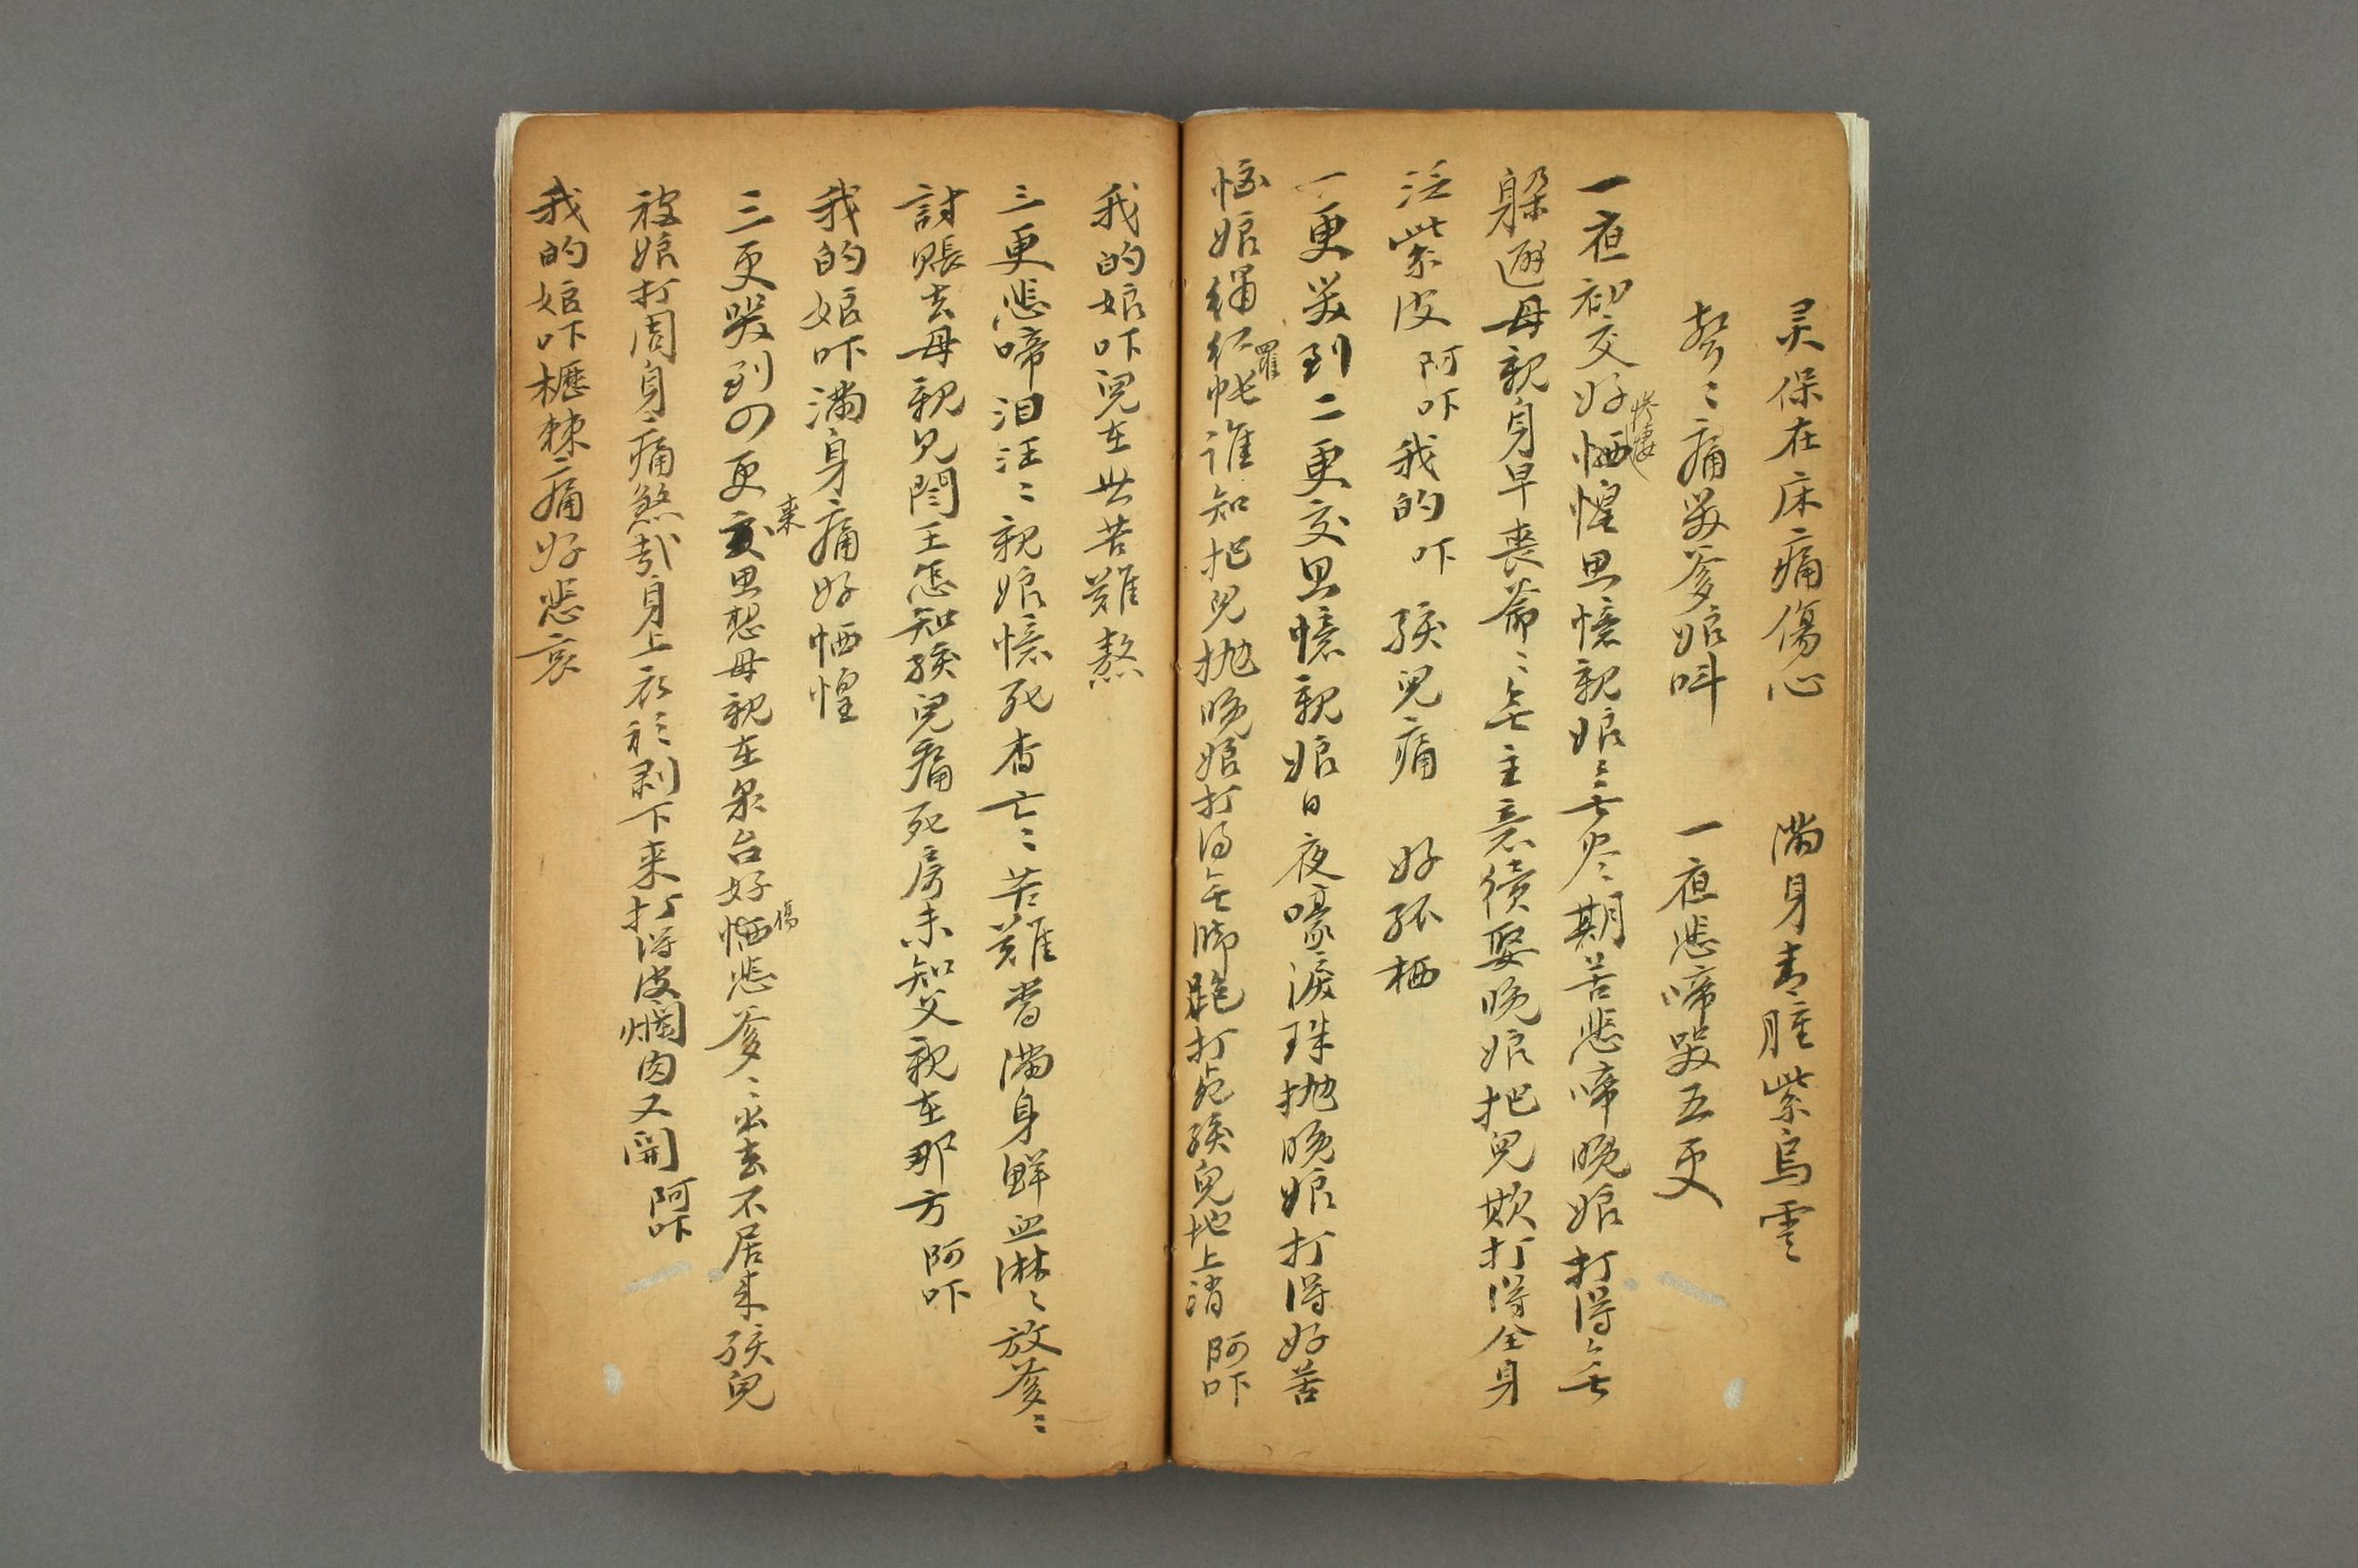 灵保在床二痛傷心　满身青腫紫烏雲
声〻痛哭爹娘叫　一夜悲啼哭五更
一夜初交好恓惶思憶親娘〻无尽期苦悲啼晚娘打得〻无
慘悽
躲避母親身早喪爺〻无主意續娶晚娘把児欺打得全身
泛紫皮 阿吓我的吓 孩児痛 好孤栖
一更哭到二更交思憶親娘日夜嚎淚珠抛晚娘打得好苦
恼娘綉红帐谁知把児抛晚娘打得无脚跑打死孩児地上消 阿吓
羅
我的娘吓児在世苦難熬
三更悲啼泪汪〻親娘憶死杳亡〻苦難當满身鮮血淋〻放爹〻
討賬去母親見閻王怎知孩児痛死房未知父親在那方 阿吓
我的娘吓满身二痛好恓惶
三更哭到四更交思想母親在泉台好恓悲爹〻出去不居来孩児
来
傷
被娘打周身〻痛煞哉身上衣衫剥下来打得皮爛肉又開 阿吓
我的娘吓櫪棘二痛好悲哀